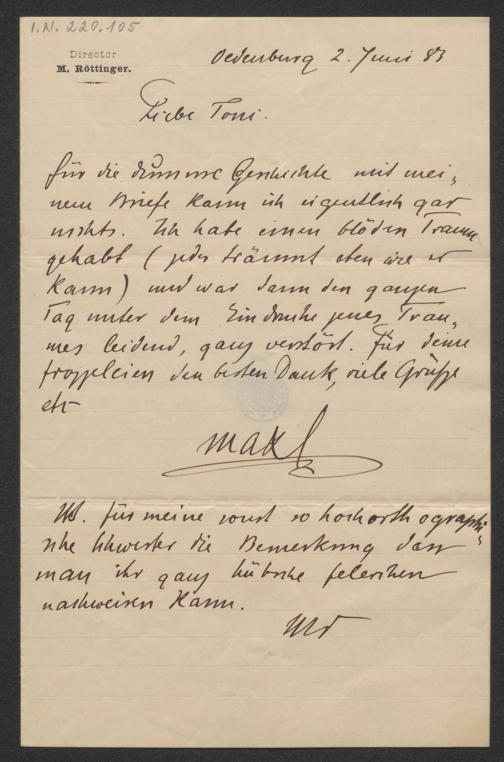 I.N. 220.105
Director
M. Röttinger.
Oedenburg 2. Juni 83
Liebe Toni.
für die dumme Geschichte mit mei-
nem Briefe kann ich eigentlich gar
nichts. Ich habe einen blöden Traum
gehabt (jeder träumt eben wie er
kann) und war dann den ganzen
Tag unter dem Eindrucke jenes Trau-
mes leidend, ganz verstört. Für deine
froppeleien den besten Dank, viele Grüße
etc
Maxl
NB. für meine sonst so hochorthographi-
sche Schwester die Bemerkung dass
man ihr ganz hübsche felerchen
nachweisen kann.